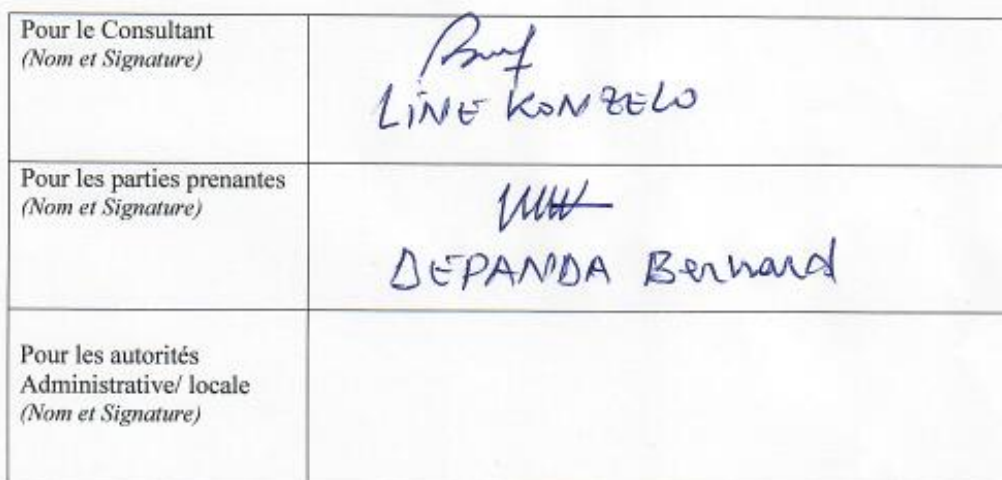 Pour le Consultant
(Nom et Signature)
LINE KONZELO
Pour les parties prenantes
(Nom et Signature)
DEPANDA Bernard
Pour les autorités
Administrative/ locale
(Nom et Signature)